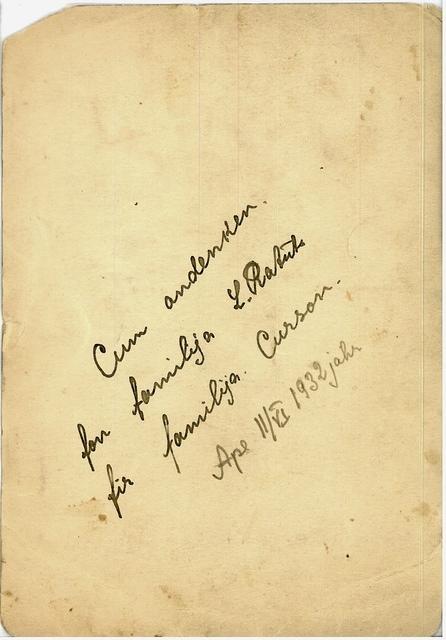 Cum andenken.
fon familija L. Ratut
fir familija. Curson.
Ape 11/VI 1932 jahr